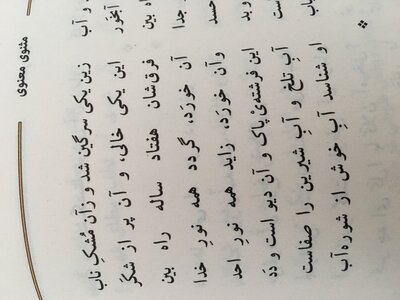 مثنوی معنوی
زین یکی سرگین شد و زآن مُشکِ ناب
د و آب
این یکی خالی، و آن پر از شکَر
آبخَور
فرق‌شان هفتاد ساله راه بین
اه بین
آن خورَد، گردد همه نورِ خدا
جدا
وآن خورَد، زاید همه نورِ احد
حسد
این فرشته‌یْ پاک و آن دیو است و دَد
و بد
آبِ تلخ و آبِ شیرین را صفاست
است
او شناسد آبِ خوش از شوره‌آب
باب